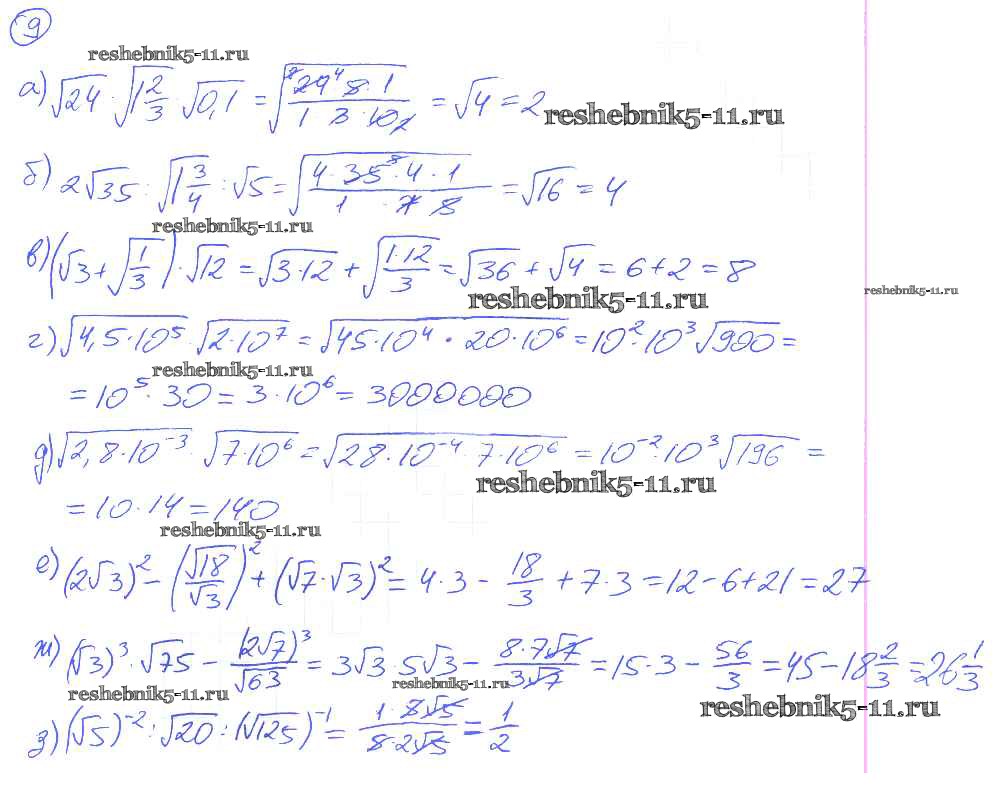 9
reshebnik5-11.ru
а) √24 · √(1 2/3) · √0,1 = √((24 · 5 · 1)/(1 · 3 · 10)) = √4 = 2 reshebnik5-11.ru
б) 2√35 : √(1 3/4) : √5 = √((4 · 35 · 4 · 1)/(1 · 7 · 5)) = √16 = 4
reshebnik5-11.ru
в) (√3 + √(1/3)) · √12 = √(3·12) + √((1·12)/3) = √36 + √4 = 6 + 2 = 8
reshebnik5-11.ru reshebnik5-11.ru
г) √(4,5·10⁵) · √(2·10⁷) = √(45·10⁴ · 20·10⁶) = 10² · 10³ √900 =
reshebnik5-11.ru
= 10⁵ · 30 = 3 · 10⁶ = 3000000
д) √(2,8·10⁻³) · √(7·10⁶) = √(28·10⁻⁴ · 7·10⁶) = 10⁻² · 10³ √196 =
reshebnik5-11.ru
= 10 · 14 = 140
reshebnik5-11.ru
е) (2√3)² − (√18/√3)² + (√7 · √3)² = 4·3 − 18/3 + 7·3 = 12 − 6 + 21 = 27
ж) (√3)³ · √75 − (2√7)³/√63 = 3√3 · 5√3 − (8·7√7)/(3√7) = 15·3 − 56/3 = 45 − 18 2/3 = 26 1/3
reshebnik5-11.ru reshebnik5-11.ru reshebnik5-11.ru
з) (√5)⁻² : √20 : (√125)⁻¹ = (1 · 5√5)/(5 · 2√5) = 1/2